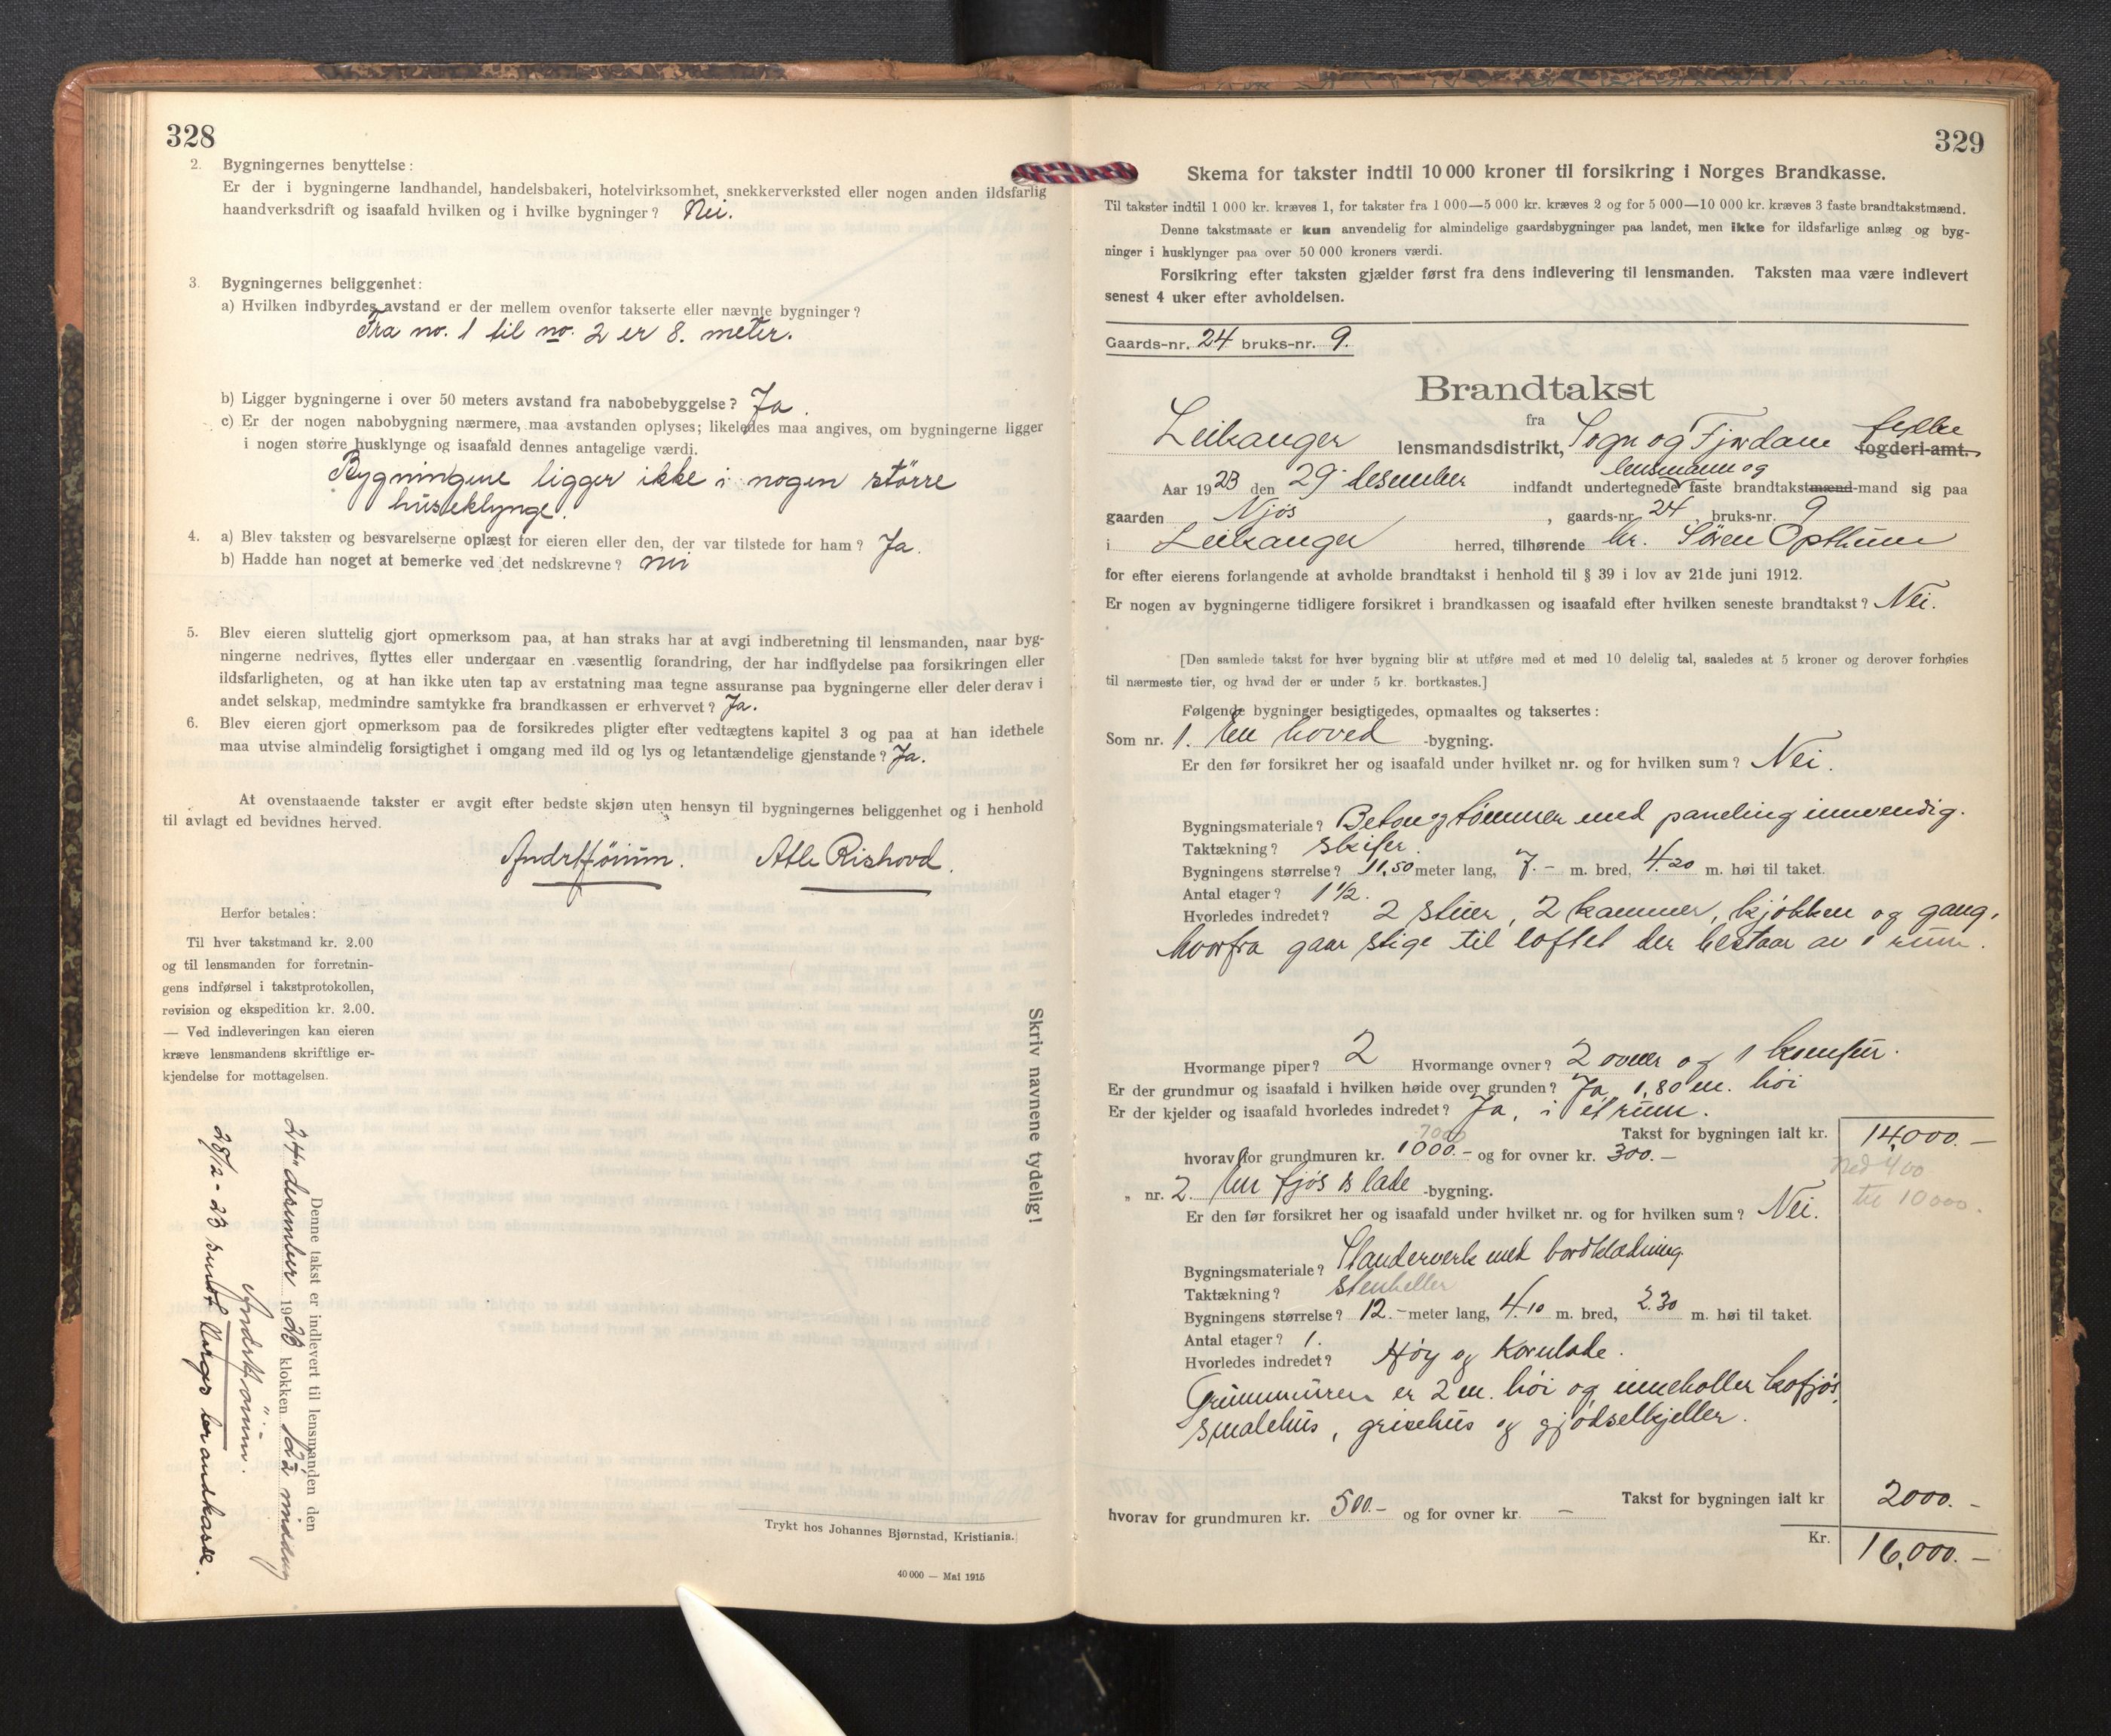 328
2. Bygningernes benyttelse:
Er der i bygningerne landhandel, handelsbakeri, hotelvirksomhet, snekkerverksted eller nogen anden ildsfarlig
haandverksdrift og isaafald hvilken og i hvilke bygninger? Nei.
3. Bygningernes beliggenhet:
a) Hvilken indbyrdes avstand er der mellem ovenfor takserte eller nævnte bygninger?
Fra no. 1 til no. 2 er 8. meter.
b) Ligger bygningerne i over 50 meters avstand fra nabobebyggelse? Ja.
c) Er der nogen nabobygning nærmere, maa avstanden oplyses; likeledes maa angives, om bygningerne ligger
i nogen større husklynge og isaafald dennes antagelige værdi.
Bygningene ligger ikke i nogen større
huseklynge.
4. a) Blev taksten og besvarelserne oplæst for eieren eller den, der var tilstede for ham? Ja.
b) Hadde han noget at bemerke ved det nedskrevne? nei
5. Blev eieren sluttelig gjort opmerksom paa, at han straks har at avgi indberetning til lensmanden, naar byg-
ningerne nedrives, flyttes eller undergaar en væsentlig forandring, der har indflydelse paa forsikringen eller
ildsfarligheten, og at han ikke uten tap av erstatning maa tegne assuranse paa bygningerne eller deler derav i
andet selskap, medmindre samtykke fra brandkassen er erhvervet? Ja.
6. Blev eieren gjort opmerksom paa de forsikredes pligter efter vedtægtens kapitel 3 og paa at han idethele
maa utvise almindelig forsigtighet i omgang med ild og lys og letantændelige gjenstande? Ja.
At ovenstaaende takster er avgit efter bedste skjøn uten hensyn til bygningernes beliggenhet og i henhold
til avlagt ed bevidnes herved.
Atle Rishovd.
Herfor betales:
Til hver takstmand kr. 2.00
og til lensmanden for forretnin-
gens indførsel i takstprotokollen,
revision og ekspedition kr. 2.00.
— Ved indleveringen kan eieren
kræve lensmandens skriftlige er-
kjendelse for mottagelsen.
Skriv navnene tydelig!
Denne takst er indlevert til lensmanden den
24. desember 1923 klokken 12 middag
28/2-23 sendt Norges brandkasse.
Trykt hos Johannes Bjørnstad, Kristiania.
40 000 — Mai 1915
329
Skema for takster indtil 10 000 kroner til forsikring i Norges Brandkasse.
Til takster indtil 1 000 kr. kræves 1, for takster fra 1 000—5 000 kr. kræves 2 og for 5 000—10 000 kr. kræves 3 faste brandtakstmænd.
Denne takstmaate er kun anvendelig for almindelige gaardsbygninger paa landet, men ikke for ildsfarlige anlæg og byg-
ninger i husklynger paa over 50 000 kroners værdi.
Forsikring efter taksten gjælder først fra dens indlevering til lensmanden. Taksten maa være indlevert
senest 4 uker efter avholdelsen.
Gaards-nr. 24 bruks-nr. 9.
Brandtakst
fra
Leikanger lensmandsdistrikt, Sogn og Fjordane fylke fogderi-amt.
lensmann og
Aar 1923 den 29. desember indfandt undertegnede faste brandtakstmænd-mand sig paa
gaarden Njøs, gaards-nr. 24, bruks-nr. 9
i Leikanger herred, tilhørende hr. Søren Opthun
for efter eierens forlangende at avholde brandtakst i henhold til § 39 i lov av 21de juni 1912.
Er nogen av bygningerne tidligere forsikret i brandkassen og isaafald efter hvilken seneste brandtakst? Nei.
[Den samlede takst for hver bygning blir at utføre med et med 10 delelig tal, saaledes at 5 kroner og derover forhøies
til nærmeste tier, og hvad der er under 5 kr. bortkastes.]
Følgende bygninger besigtigedes, opmaaltes og taksertes:
Som nr. 1. En hoved -bygning.
Er den før forsikret her og isaafald under hvilket nr. og for hvilken sum? Nei.
Bygningsmateriale? Betong tømmer med paneling innvendig.
Taktækning? skifer.
Bygningens størrelse? 11,50 meter lang, 7.- m. bred, 4.20 m. høi til taket.
Antal etager? 1 1/2.
Hvorledes indredet? 2 stuer, 2 kammer, kjøkken og gang,
hvorfra gaar stige til loftet der bestaar av 1 rum.
Hvormange piper? 2 Hvormange ovner? 2 ovner og 1 komfur.
Er der grundmur og isaafald i hvilken høide over grunden? Ja, 1,80 m. høi
Er der kjelder og isaafald hvorledes indredet? Ja, i et rum.
Takst for bygningen ialt kr. 14,000.—
7000
hvorav for grundmuren kr. 1000.- og for ovner kr. 300.—
Ned 400
til 10000.
„ nr. 2. En fjøs & lade -bygning.
Er den før forsikret her og isaafald under hvilket nr. og for hvilken sum? Nei.
Bygningsmateriale? Standerverk med bordklædning.
Taktækning? stenheller
Bygningens størrelse? 12.- meter lang, 4.10 m. bred, 2.30 m. høi til taket.
Antal etager? 1.
Hvorledes indredet? Høy og kornlade.
Grunnmuren er 2 m. høi og inneholler kofjøs,
smalehus, grisehus og gjødselkjeller.
Takst for bygningen ialt kr 2000.-
hvorav for grundmuren kr. 500.- og for ovner kr. —
Kr. 16,000.—